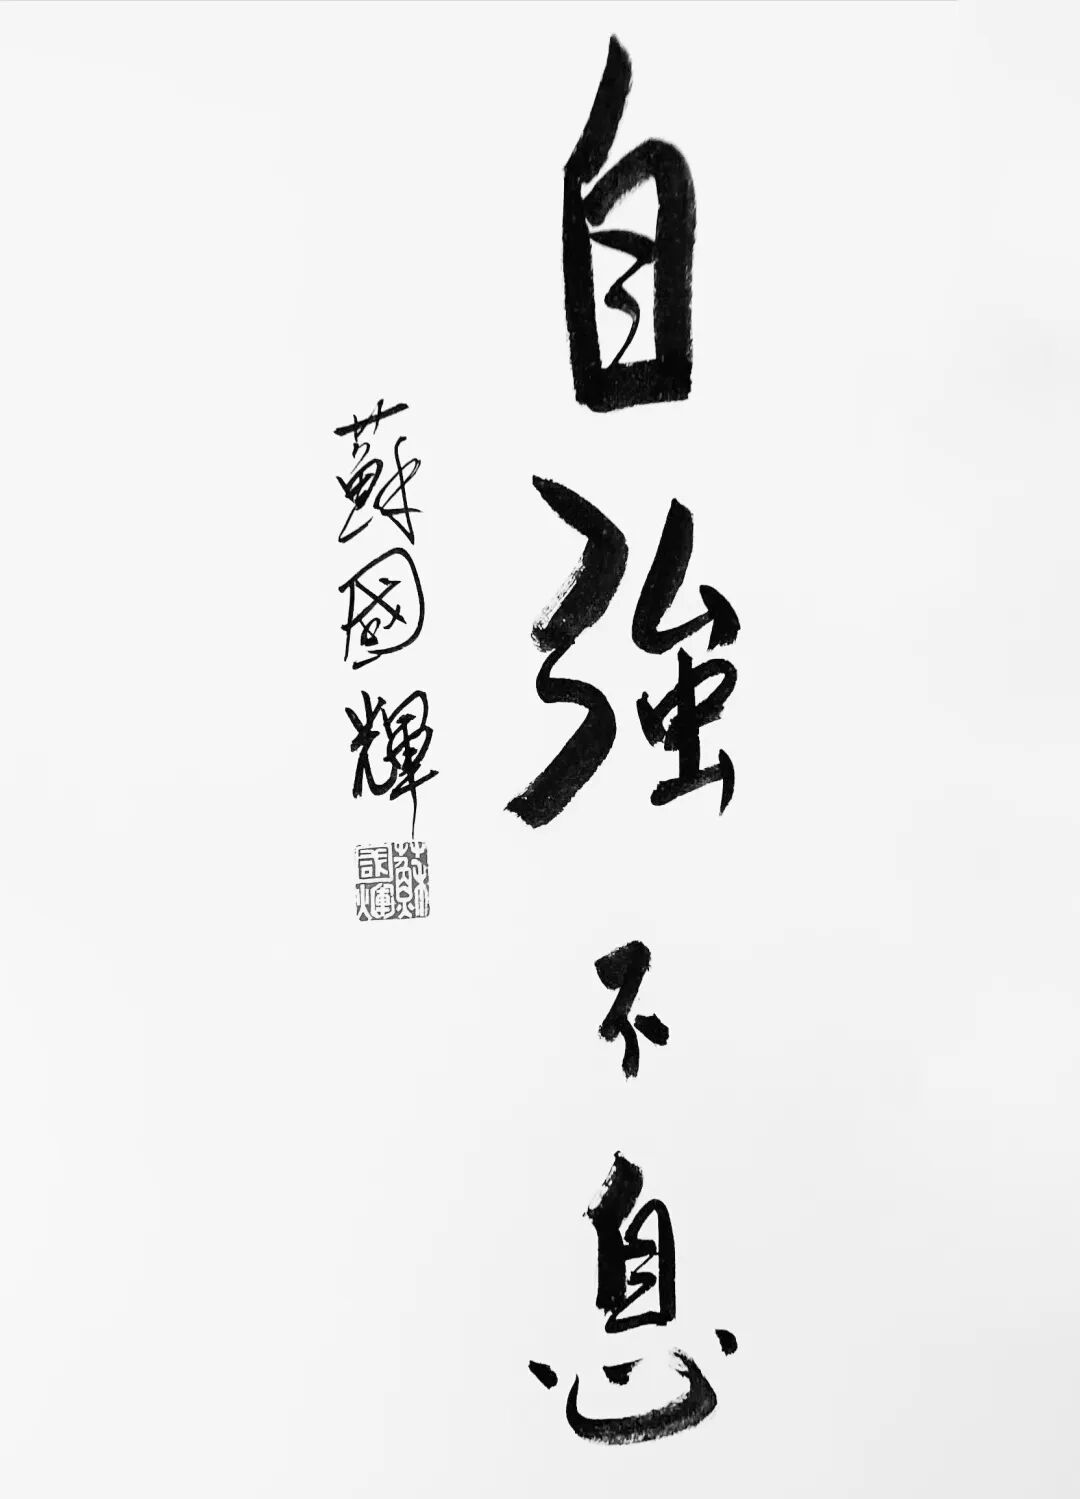 自強不息
蘇國輝
蘇國煇